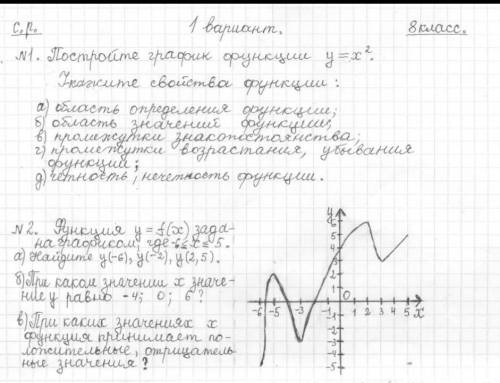 с.р. 1 вариант. 8 класс.
№1. Постройте график функции y = x².
Укажите свойства функции:
а) область определения функции;
б) область значений функции;
в) промежутки знакопостоянства;
г) промежутки возрастания, убывания
функции;
д) четность, нечетность функции.
№2. Функция y = f(x) зада-
на графиком, где -6 ≤ x ≤ 5.
а) Найдите y(-6), y(-2), y(2,5).
б) При каком значении x значе-
ние y равно -4; 0; 6?
в) При каких значениях x
функция принимает по-
ложительные, отрицатель-
ные значения?
y
6
5
4
3
2
1
-6 -5 -4 -3 -2 -1 0 1 2 3 4 5 x
-1
-2
-3
-4
-5